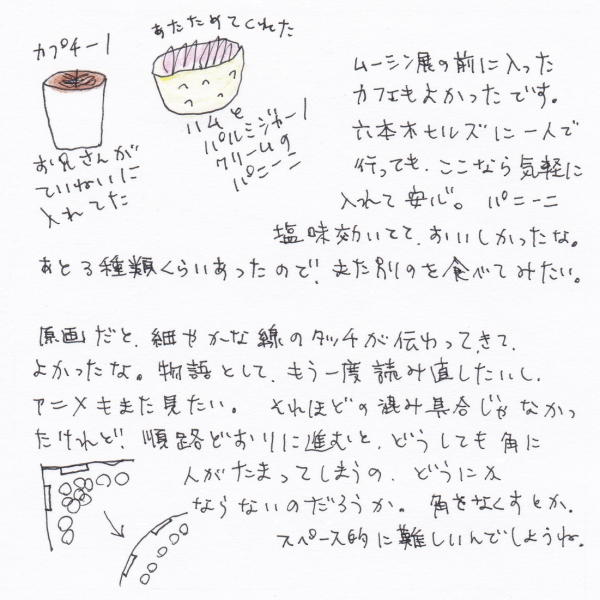 カプチーノ
お兄さんが
ていねいに
入れてた
あたためてくれた
ハムと
パルミジャーノ
クリームの
パニーニ
ムーミン展の前に入った
カフェもよかったです。
六本木ヒルズに一人で
行っても、ここなら気軽に
入れて安心。パニーニ
塩味効いてて、おいしかったな。
あと3種類くらいあったので、また別のを食べてみたい。
原画だと、細やかな線のタッチが伝わってきて、
よかったな。物語として、もう一度読み直したいし、
アニメもまた見たい。それほどの混み具合じゃなかっ
たけれど、順路どおりに進むと、どうしても角に
人がたまってしまうの、どうにか
ならないのだろうか。角をなくすとか、
スペース的に難しいんでしょうね。